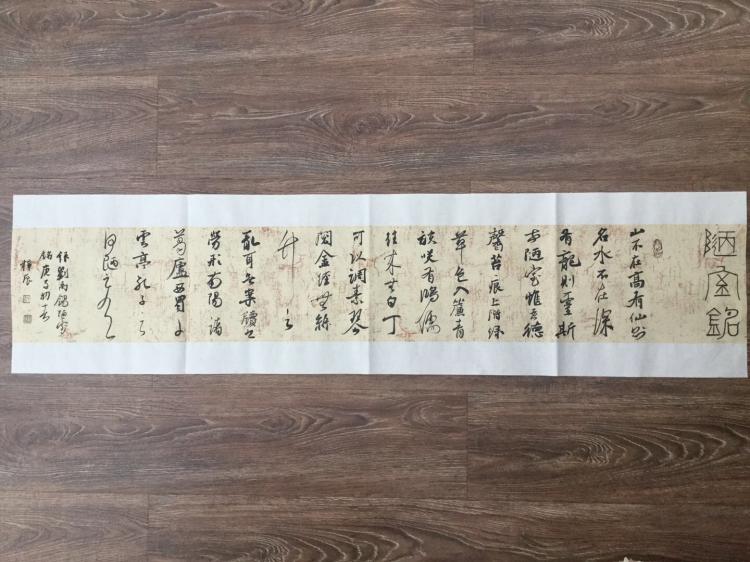 陋室銘
山不在高有仙則
名水不在深
有龍則靈斯
是陋室惟吾德
馨苔痕上階綠
草色入簾青
談笑有鴻儒
往來無白丁
可以調素琴
閱金經無絲
竹之
亂耳無案牘之
勞形南陽諸
葛廬西蜀子
雲亭孔子云
何陋之有
錄劉禹錫陋室
銘庚子初春